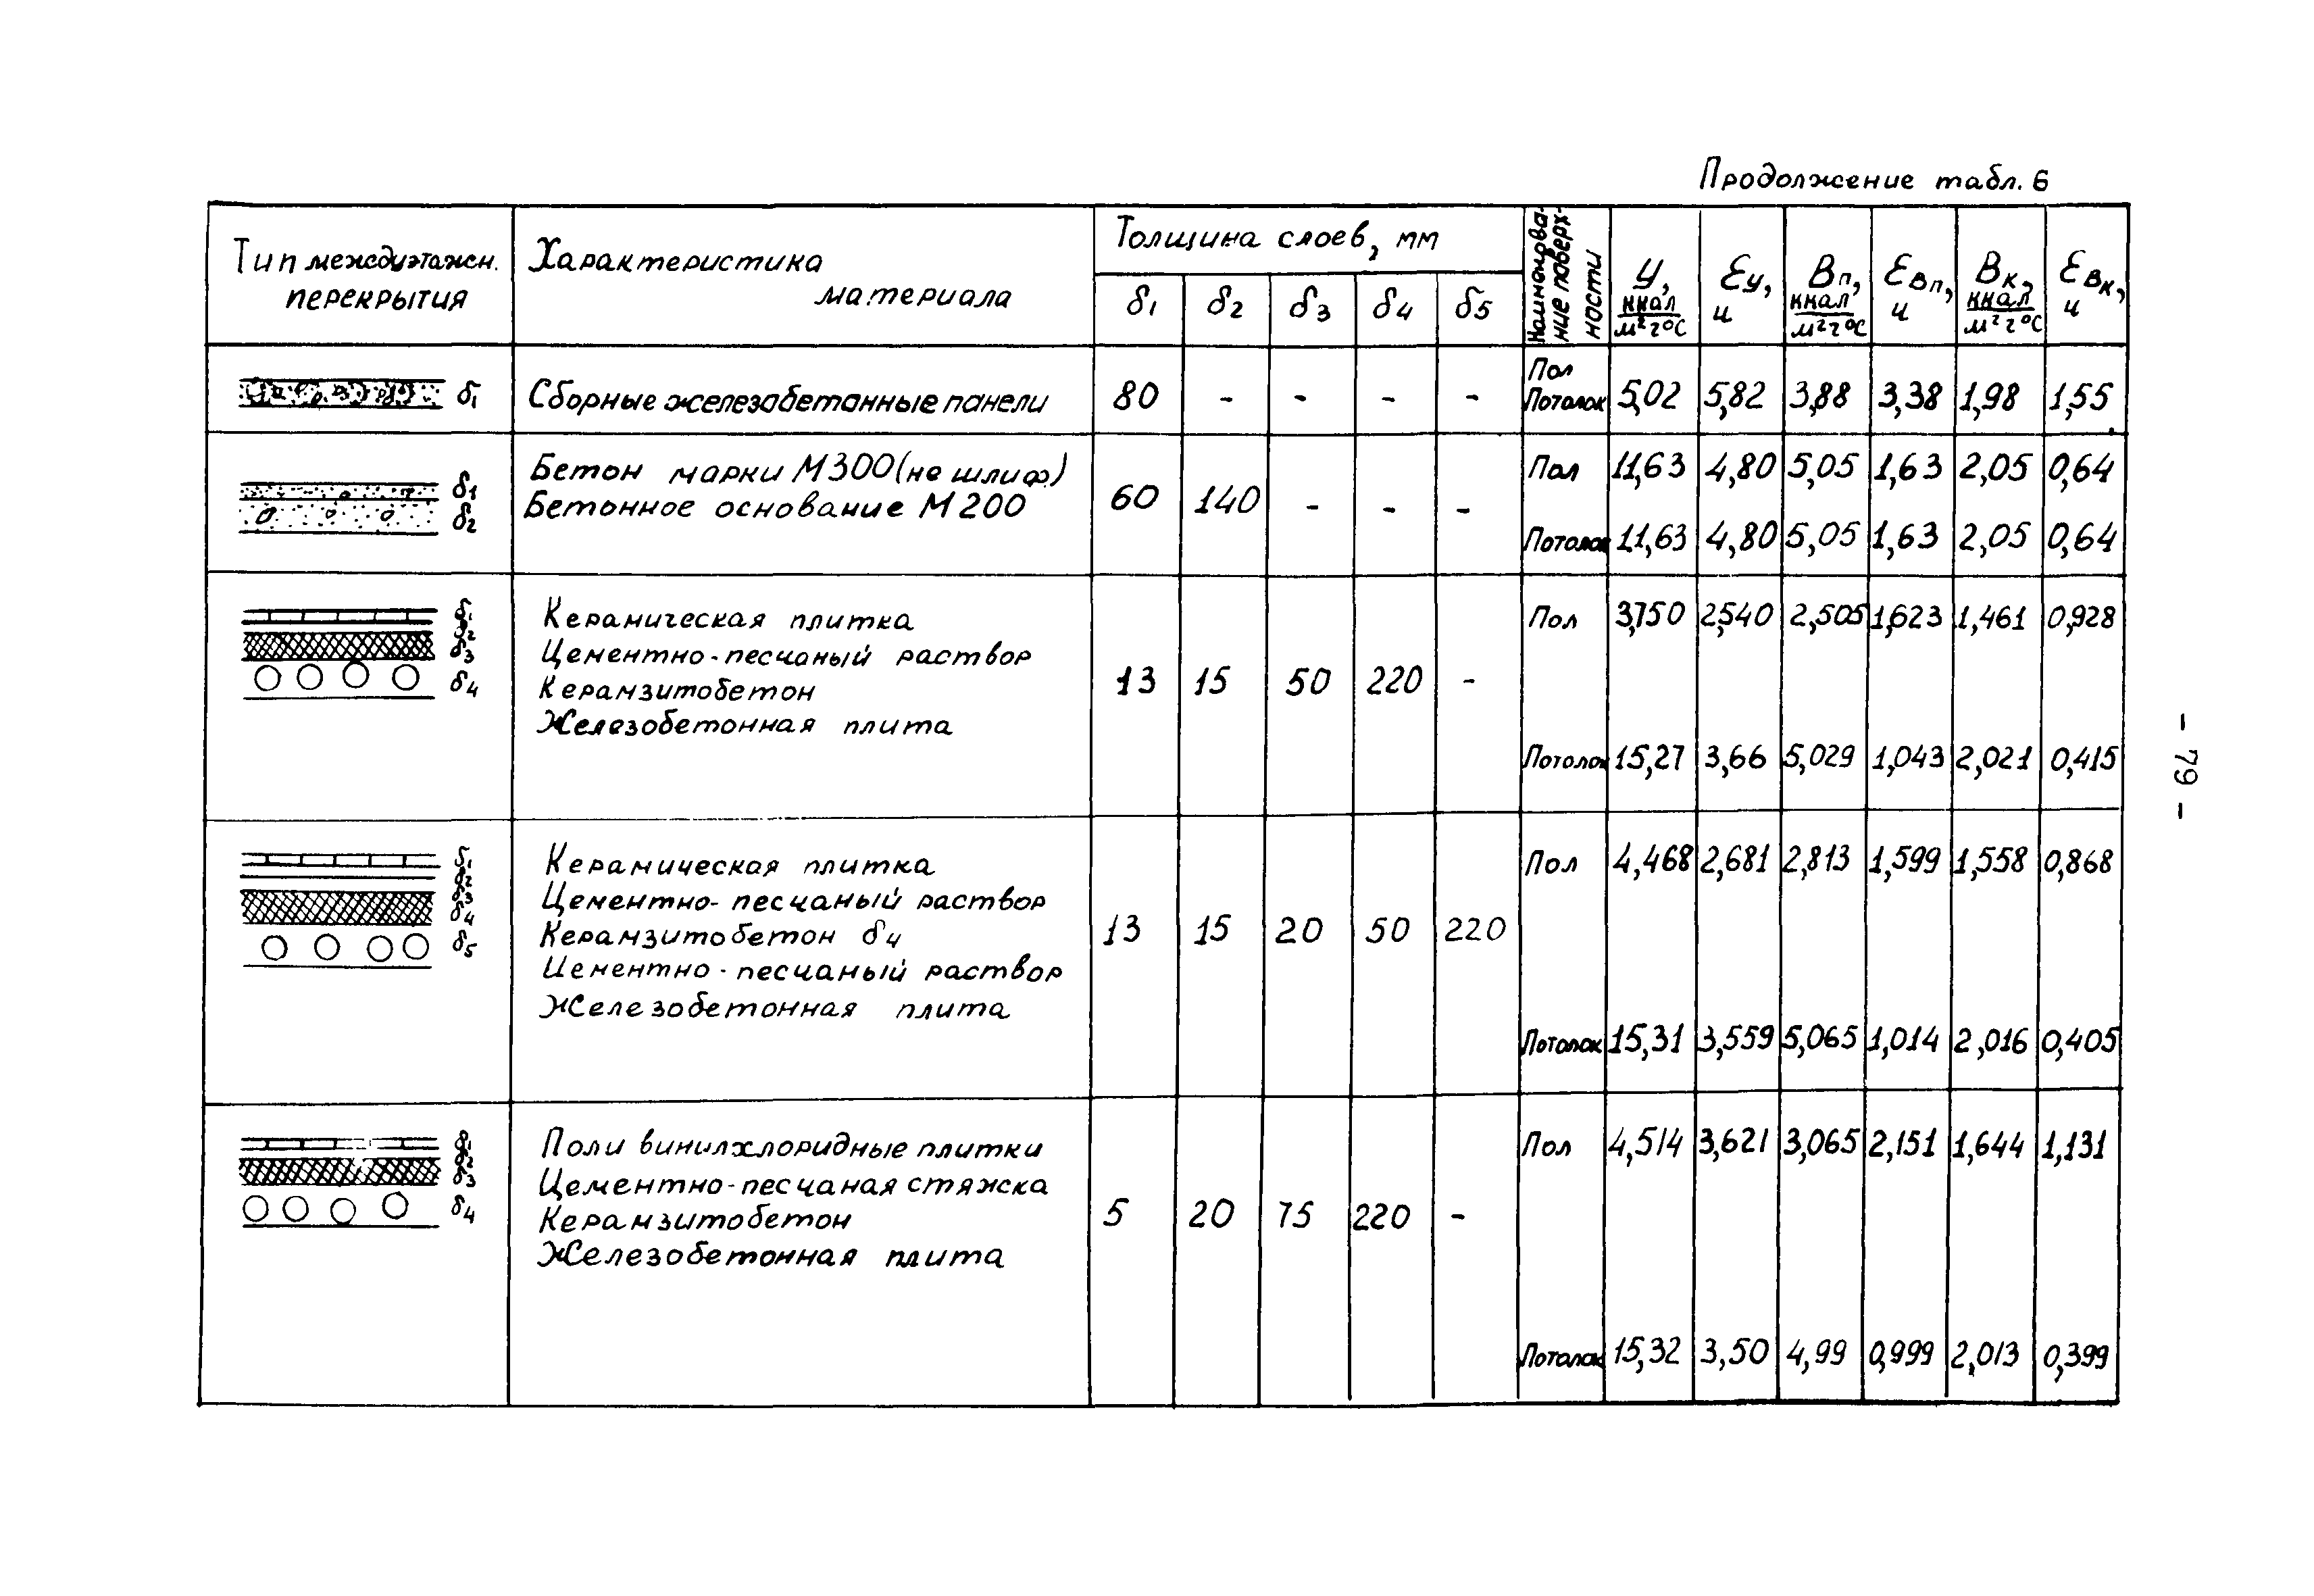 Продолжение табл. 6
Тип междуэтажн. перекрытия
Характеристика материала
Толщина слоев, мм
δ1 δ2 δ3 δ4 δ5
Наименова-
ние поверх-
ности
У, ккал/м²г°С
Ɛу, ч
Вп, ккал/м²г°С
Ɛвп, ч
Вк, ккал/м²г°С
Ɛвк, ч
δ1
Сборные железобетонные панели
80 - - - -
Пол
Потолок 5,02 5,82 3,88 3,38 1,98 1,55
δ1
δ2
Бетон марки М300 (не шлиф.)
Бетонное основание М200
60 140 - - -
Пол 11,63 4,80 5,05 1,63 2,05 0,64
Потолок 11,63 4,80 5,05 1,63 2,05 0,64
δ1
δ2
δ3
δ4
Керамическая плитка
Цементно-песчаный раствор
Керамзитобетон
Железобетонная плита
13 15 50 220 -
Пол 3,750 2,540 2,505 1,623 1,461 0,928
Потолок 15,27 3,66 5,029 1,043 2,021 0,415
δ1
δ2
δ3
δ4
δ5
Керамическая плитка
Цементно-песчаный раствор
Керамзитобетон δ4
Цементно-песчаный раствор
Железобетонная плита
13 15 20 50 220
Пол 4,468 2,681 2,813 1,599 1,558 0,868
Потолок 15,31 3,559 5,065 1,014 2,016 0,405
δ1
δ2
δ3
δ4
Поли винилхлоридные плитки
Цементно-песчаная стяжка
Керамзитобетон
Железобетонная плита
5 20 75 220 -
Пол 4,514 3,621 3,065 2,151 1,644 1,131
Потолок 15,32 3,50 4,99 0,999 2,013 0,399
- 79 -